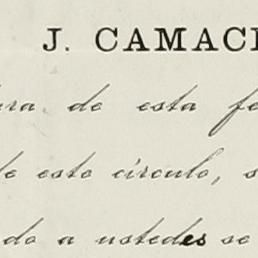 J. CAMACH
ura de esta fe
de este círculo, s
do a ustedes se